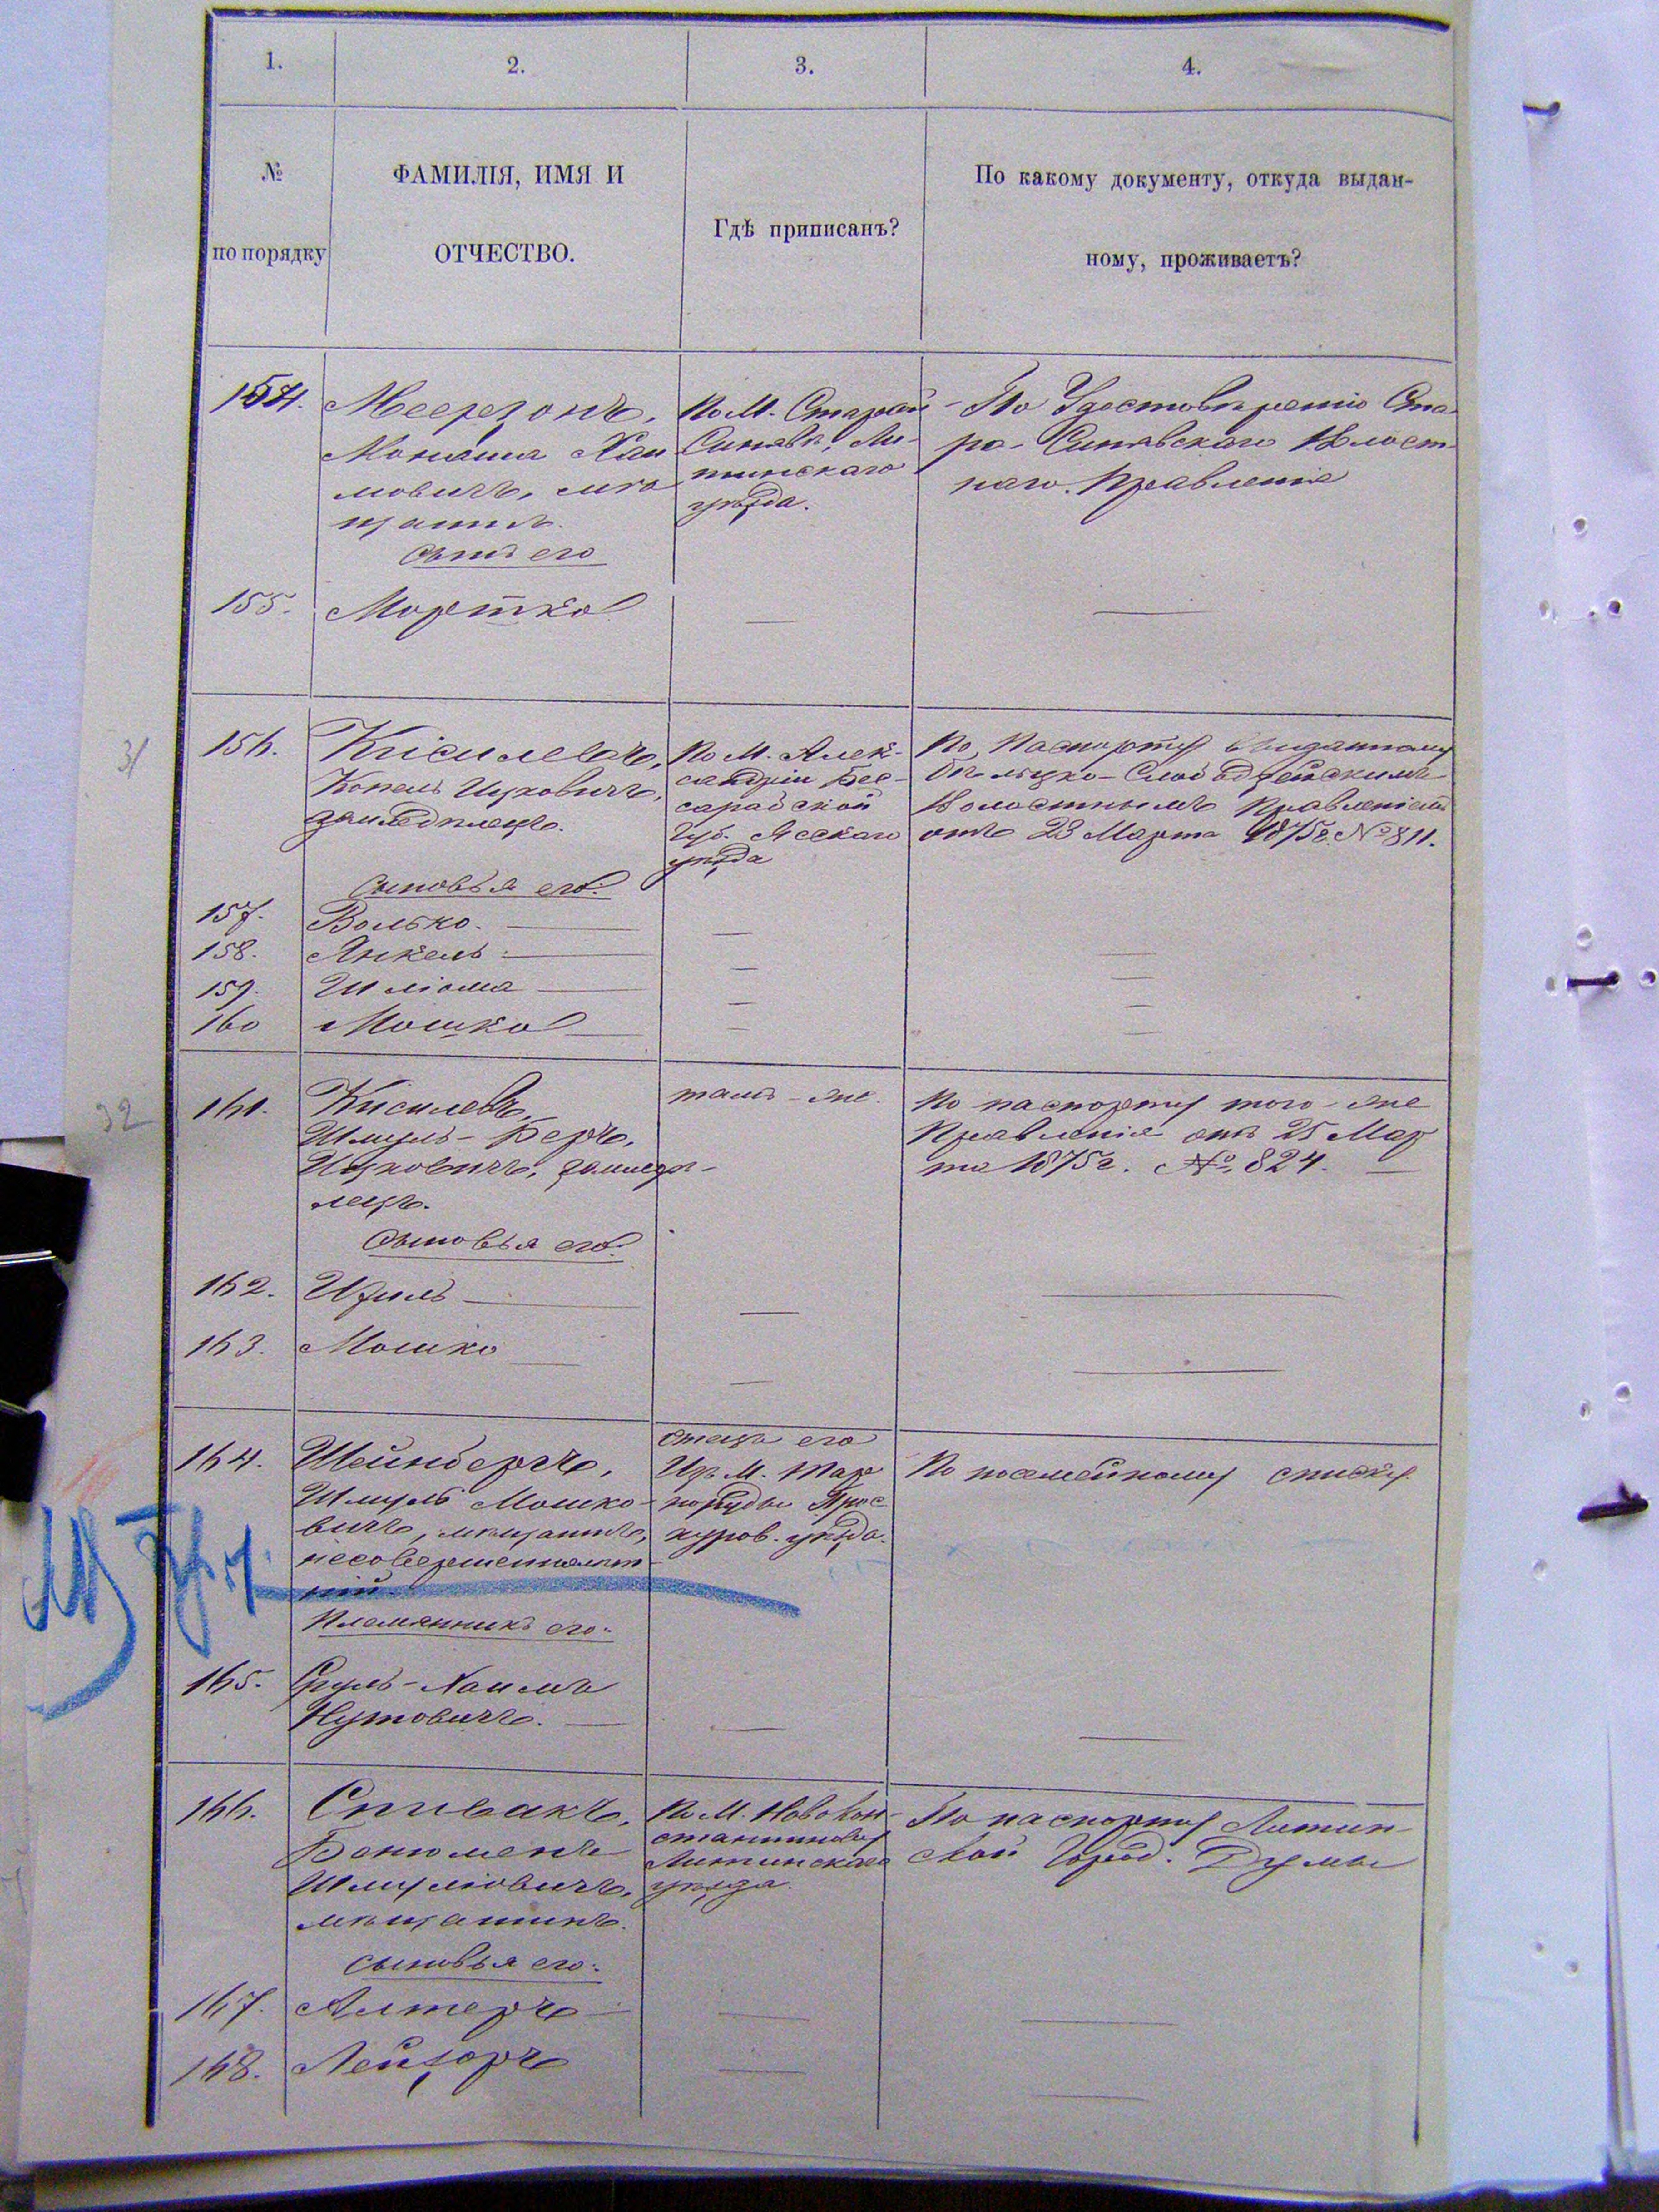 1.
2.
3.
4.
№
по порядку
ФАМИЛІЯ, ИМЯ И
ОТЧЕСТВО.
Гдѣ приписанъ?
По какому документу, откуда выдан-
ному, проживаетъ?
154.
Меерзонъ,
Монаша Хаи
мовичъ, мѣ
щанинъ.
сынъ его
По М. Старой
Синявѣ, Ли-
тинскаго
уѣзда.
По Удостовѣренію Ста-
ро-Синявскаго Волост
наго Правленія
155.
Мортко
31
156.
Кисилевъ,
Копель Ицковичъ,
земледѣлецъ.
По М. Алек-
сандріи Бес-
сарабской
Губ. Ясскаго
уѣзда
По Паспорту выданному
Бѣльцко-Слободзейскимъ
Волостнымъ Правленіемъ
отъ 23 Марта 1875г. №811.
Сыновья его:
157.
Волько.
158.
Янкель
159.
Шліома
160
Мошко
32
161.
Кисилевъ,
Шмуль-Беръ,
Ицковичъ, земледѣ-
лецъ.
тамъ-же.
По паспорту того-же
Правленія отъ 25 Мар
та 1875г. №. 824.
Сыновья его:
162.
Ицель
163.
Мошко
164.
Шейнбергъ,
Шмуль Мошко-
вичъ, мѣщанинъ,
несовершеннолѣт-
ній.
отецъ его
Изъ М. Тар
норуды Прос
куров. уѣзда.
По посемейному списку
Племянникъ его:
165.
Сруль-Хаимъ
Нутовичъ.
166.
Спивакъ,
Бенюменъ
Шмуліовичъ,
мѣщанинъ.
По М. Новокон-
стантинову
Литинскаго
уѣзда.
По паспорту Литин-
ской Город. Думы
сыновья его:
167.
Алтеръ
168.
Лейзоръ